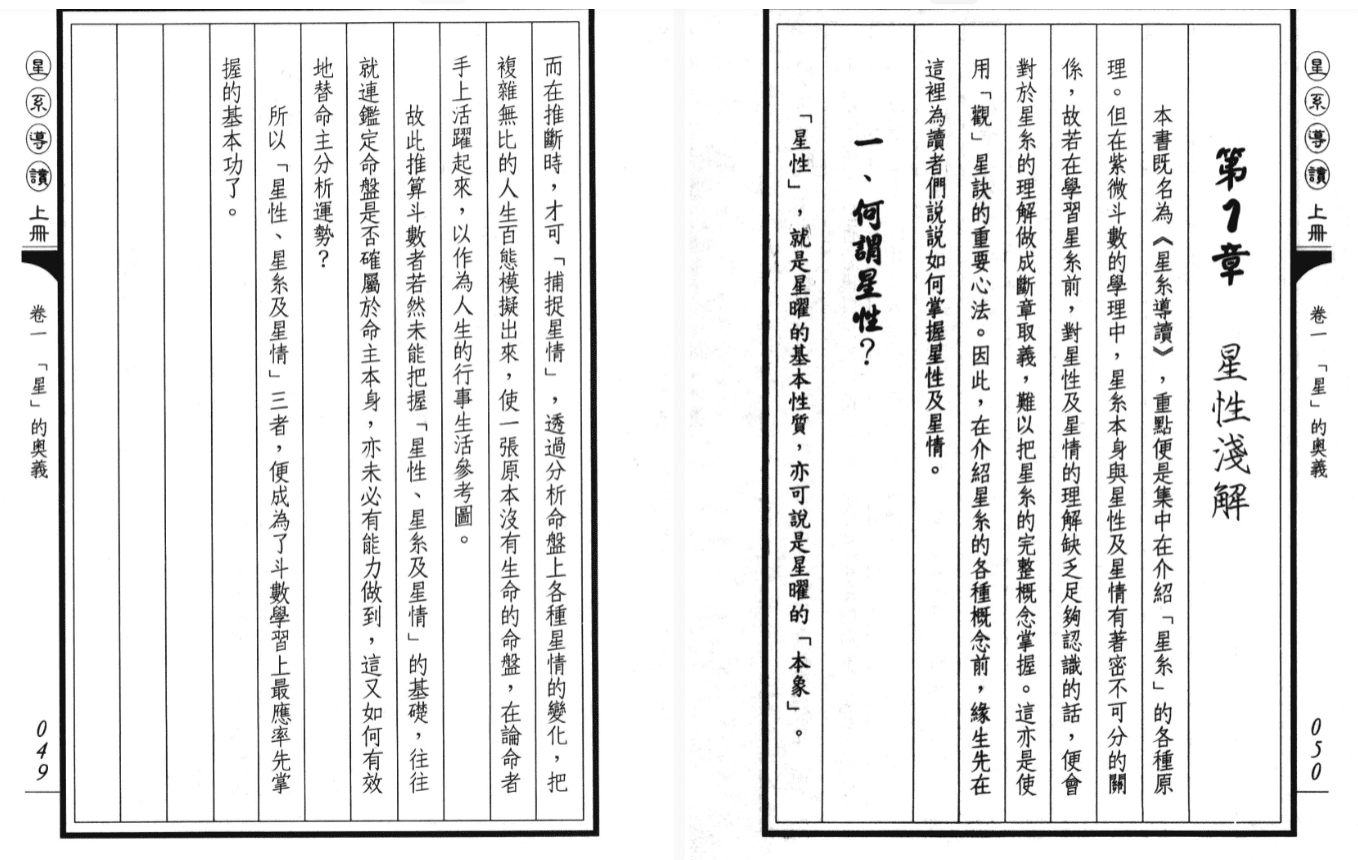 星系導讀 上冊
卷一 「星」的奧義
049
而在推斷時，才可「捕捉星情」，透過分析命盤上各種星情的變化，把
複雜無比的人生百態模擬出來，使一張原本沒有生命的命盤，在論命者
手上活躍起來，以作為人生的行事生活參考圖。
故此推算斗數者若然未能把握「星性、星系及星情」的基礎，往往
就連鑑定命盤是否確屬於命主本身，亦未必有能力做到，這又如何有效
地替命主分析運勢？
所以「星性、星系及星情」三者，便成為了斗數學習上最應率先掌
握的基本功了。
星系導讀 上冊
卷一 「星」的奧義
050
第1章 星性淺解
本書既名為《星系導讀》，重點便是集中在介紹「星系」的各種原
理。但在紫微斗數的學理中，星系本身與星性及星情有著密不可分的關
係，故若在學習星系前，對星性及星情的理解缺乏足夠認識的話，便會
對於星系的理解做成斷章取義，難以把星系的完整概念掌握。這亦是使
用「觀」星訣的重要心法。因此，在介紹星系的各種概念前，緣生先在
這裡為讀者們說說如何掌握星性及星情。
一、何謂星性？
「星性」，就是星曜的基本性質，亦可說是星曜的「本象」。